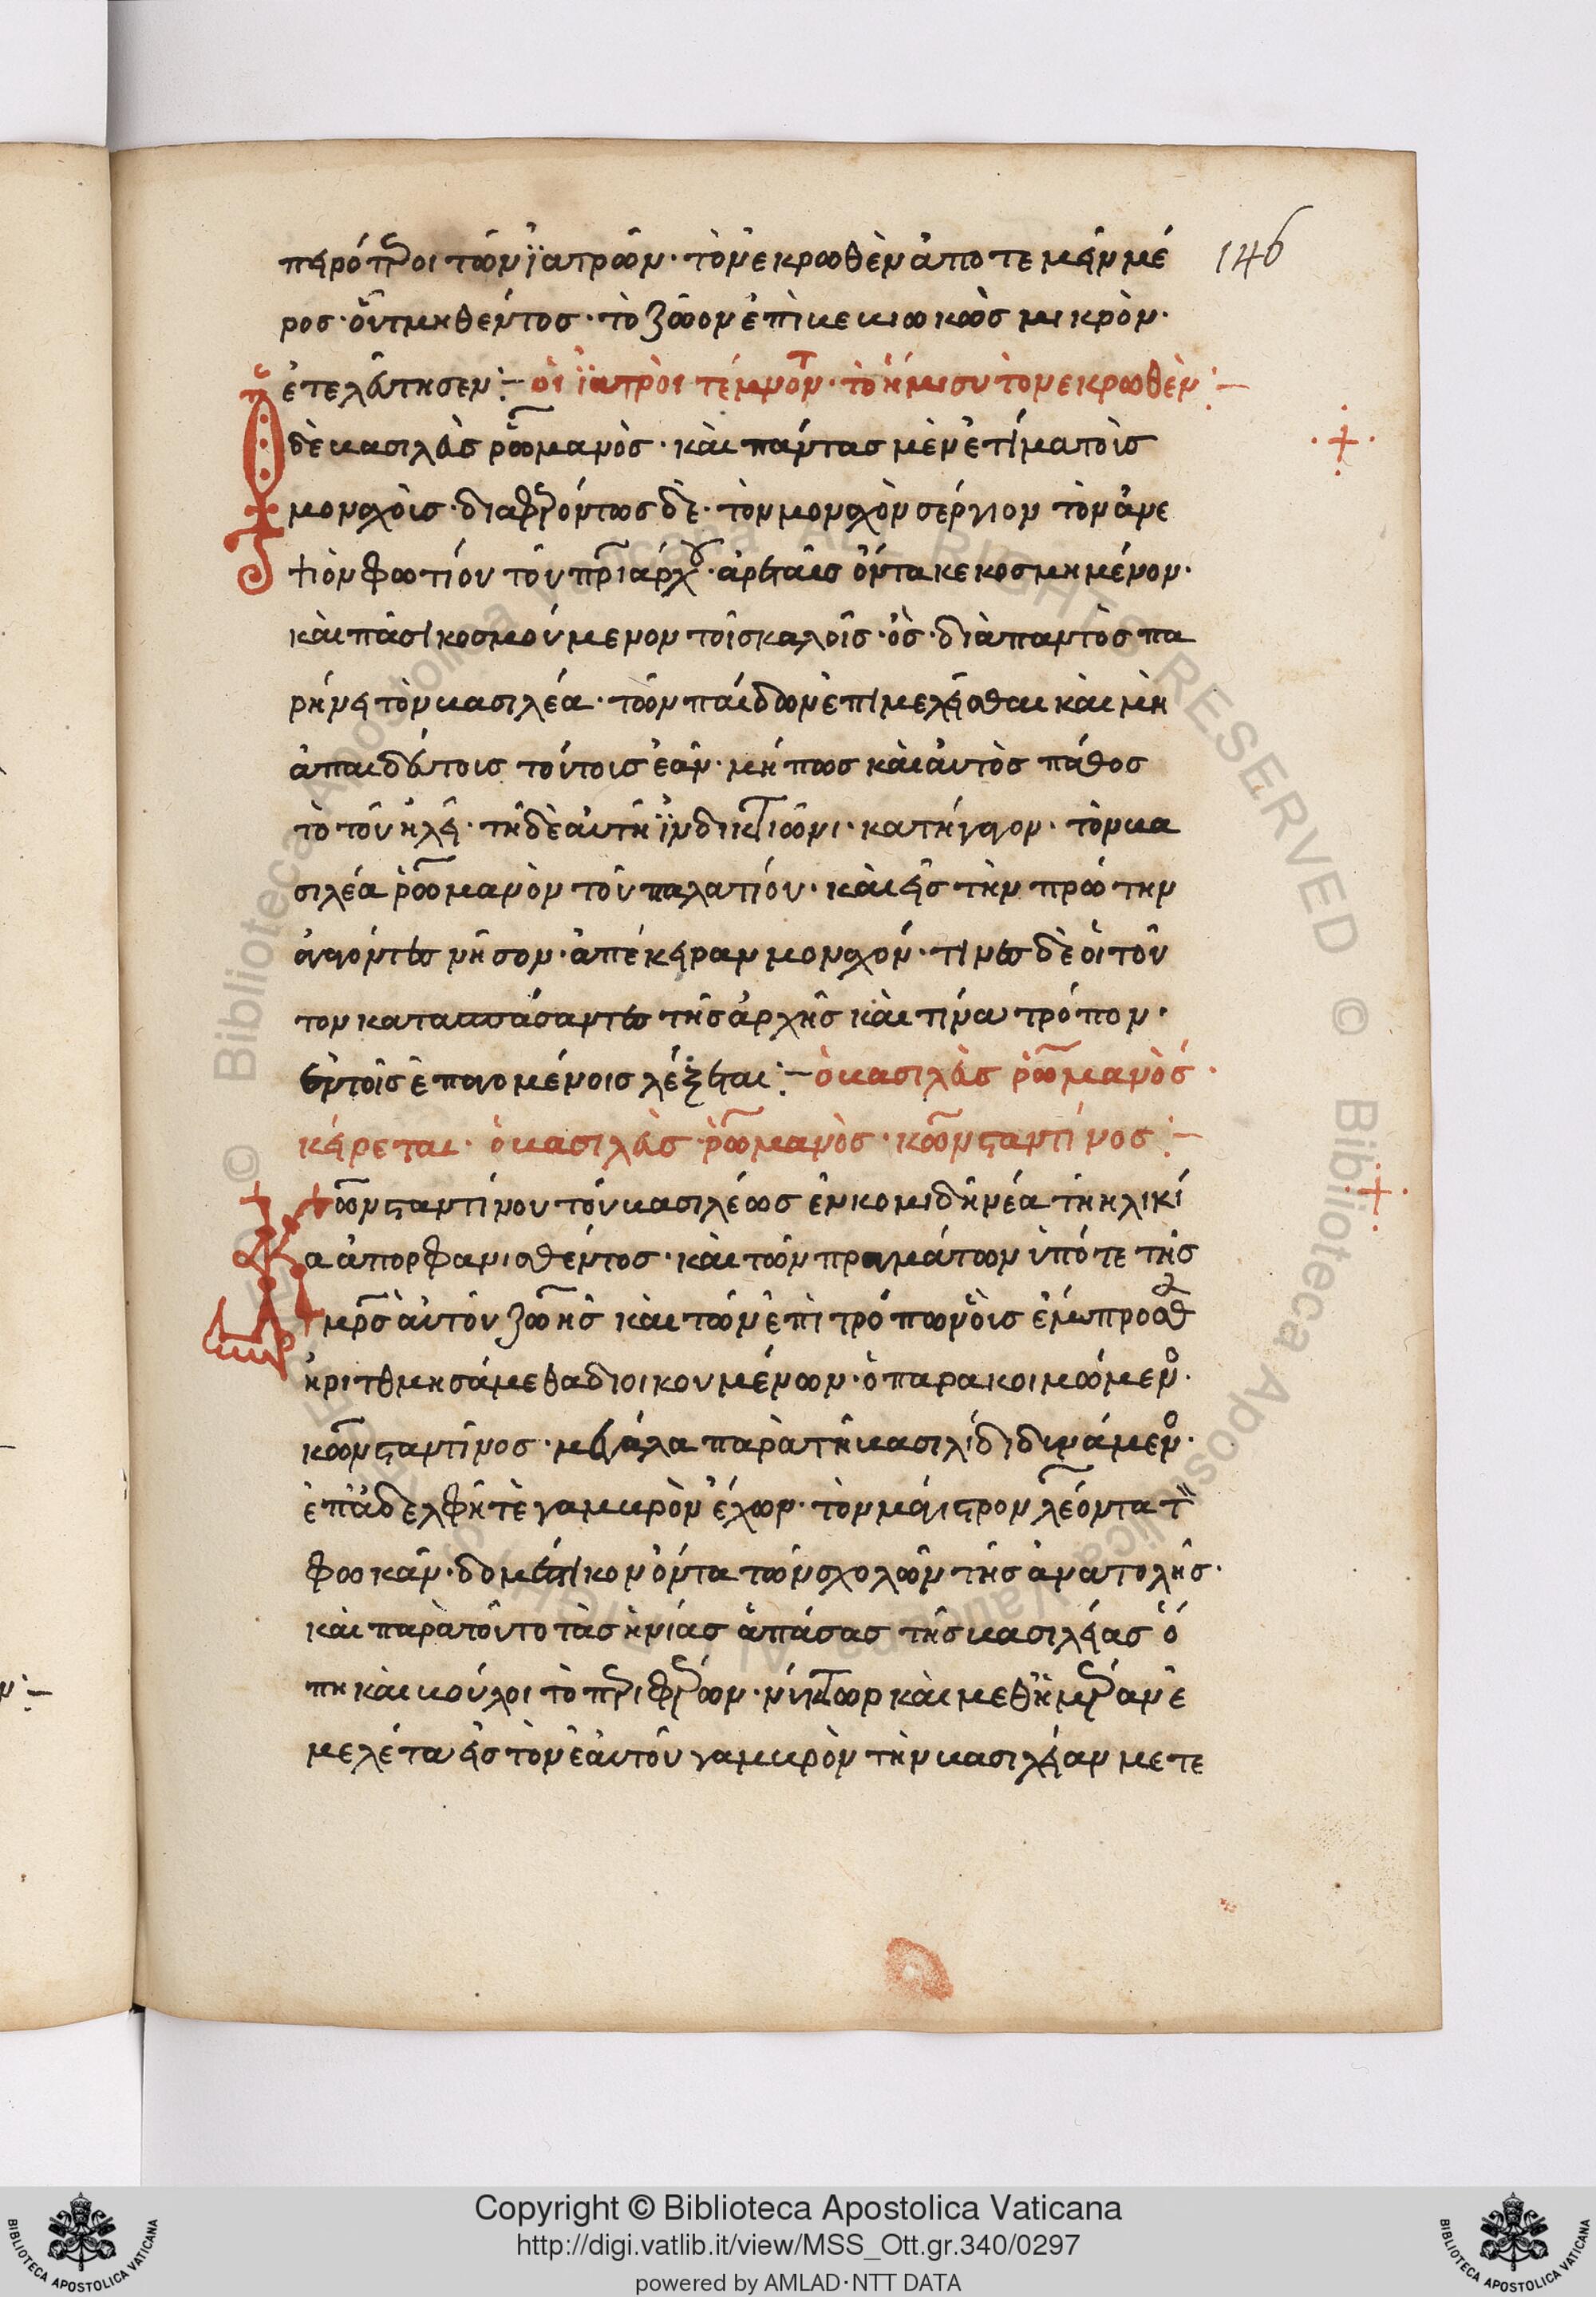 πειρότεροι τῶν ἰατρῶν· τὸ νεκρωθὲν ἀποτεμεῖν μέ
146
ρος· οὗ τμηθέντος· τὸ ζῶον ἐπιβεβιωκὼς μικρὸν·
ἐτελεύτησεν:– οἱ ἰατρὸι τέμνουν· τὸ ἥμισυ τὸ νεκρωθὲν:–
Ὁ δὲ βασιλεὺς ῥωμανὸς· καὶ πάντας μὲν ἐτίμα τοὶς
μοναχὸις· διαφερόντως δὲ· τὸν μοναχὸν σέργιον τὸν ἀνε
ψιὸν φωτίου τοῦ πατριάρχου· ἀρεταῖς ὄντα κεκοσμημένον·
καὶ πᾶσι κοσμούμενον τοῖς καλοῖς· ὃς· διὰ παντὸς πα
ρήνει τὸν βασιλέα· τῶν παίδων ἐπιμελεῖσθαι καὶ μὴ
ἀπαιδεύτοις τούτοις ἐᾶν· μήπως καὶ αὐτὸς πάθοσ
τὸ τοῦ ἠλεὶ· τῇ δὲ αὐτῇ ἰνδικτιῶνι· κατήγαγον· τὸν βα
σιλέα ῥωμανὸν τοῦ παλατίου· καὶ εἰς τὴν πρώτην
ἀγαγόντες νῆσον· ἀπέκειραν μοναχόν· τίνες δὲ οἱ τοῦ
τον καταπαύσαντες τῆς ἀρχῆς καὶ τίνα τρόπον·
ἐν τοῖς ἐπαγομένοις λέξεται:– ὁ βασιλεὺς ῥωμανὸς·
κείρεται· ὁ βασιλεὺς ῥωμανὸς· κωνσταντίνος:–
Κωνσταντίνου τοῦ βασιλέως ἐν κομιδῇ νέα τῇ ἡλικί
α ἀπορφανισθέντος· καὶ τῶν πραγμάτων ὑπό τε τῆς
μητρὸς αὐτοῦ ζωῆς καὶ τῶν ἐπιτρόπων οὓς ἔμπροσθεν
ἠριτθμησάμεθα διοικουμένων· ὁ παρακοιμώμενος·
κωνσταντῖνος· μεγάλα παρὰ τῇ βασιλίδι δυνάμενος·
ἐπ' ἀδελφῇ τὲ γαμβρὸν ἔχων· τὸν μάγιστρον λέοντα τὸν
φωκᾶν· δομέστικον ὄντα τῶν σχολῶν τῆς ἀνατολῆς·
καὶ παρὰ τοῦτο τὰς ἡνίας ἁπάσας τῆς βασιλείας ὅ
πη καὶ βούλοιτο περιφέρων· νύκτωρ καὶ μεθημέραν ἐ
μελέτα εἰς τὸν ἑαυτοῦ γαμβρὸν τὴν βασιλείαν μετε
Copyright © Biblioteca Apostolica Vaticana
http://digi.vatlib.it/view/MSS_Ott.gr.340/0297
powered by AMLAD·NTT DATA